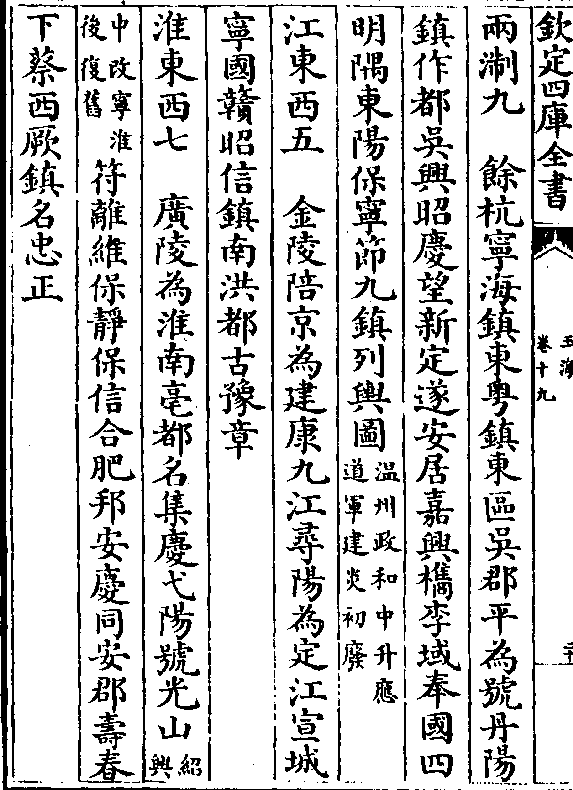 欽定四庫全書
玉海
卷十九
兩淛九　餘杭寧海鎮東粤鎮東區吳郡平為號丹陽
鎮作都吳興昭慶望新定遂安居嘉興檇李域奉國四
明隅東陽保寧節九鎮列輿圖温州政和中升應
道軍建炎初廢
江東西五　金陵陪京為建康九江尋陽為定江宣城
寧國贛昭信鎮南洪都古豫章
淮東西七　廣陵為淮南亳都名集慶弋陽號光山紹
興
中改寧淮
後復舊符離維保靜保信合肥邦安慶同安郡壽春
下蔡西厥鎮名忠正